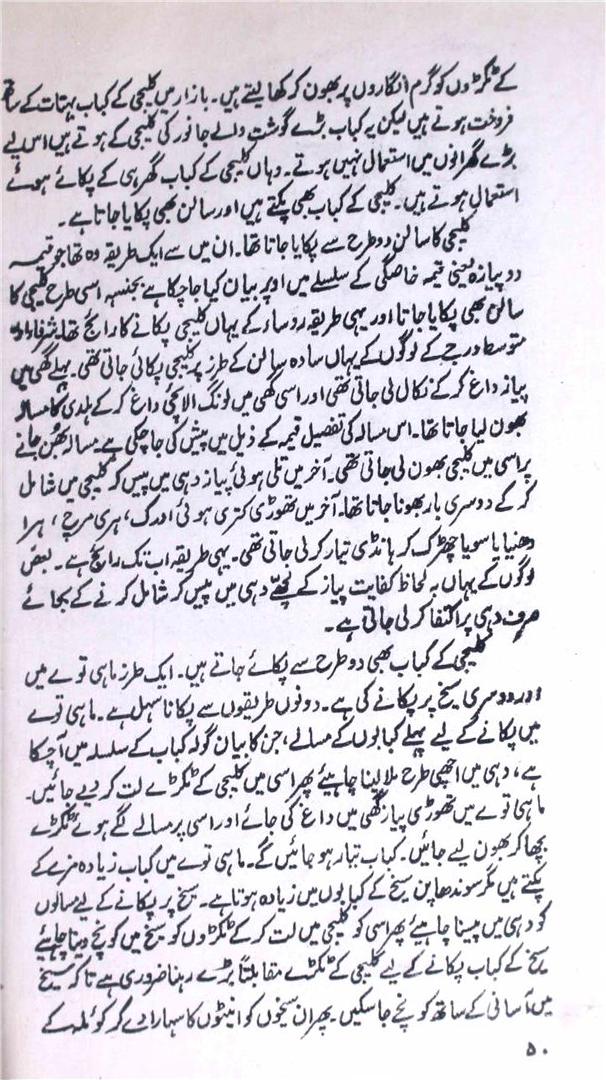 کے ٹکڑوں کو گرم انگاروں پر بھون کر کھا لیتے ہیں۔ بازار میں کلیجی کے کباب بہتات کے ساتھ
فروخت ہوتے ہیں لیکن یہ کباب بڑے گوشت والے جانور کی کلیجی کے ہوتے ہیں اس لیے
بڑے گھرانوں میں استعمال نہیں ہوتے۔ وہاں کلیجی کے کباب گھر ہی کے پکائے ہوئے
استعمال ہوتے ہیں۔ کلیجی کے کباب بھی پکتے ہیں اور سالن بھی پکایا جاتا ہے۔
کلیجی کا سالن دو طرح سے پکایا جاتا تھا۔ ان میں سے ایک طریقہ وہ تھا جو قیمہ
دو پیازہ یعنی قیمہ خاصگی کے سلسلے میں اوپر بیان کیا جا چکا ہے بجنسہ اسی طرح کلیجی کا
سالن بھی پکایا جاتا اور یہی طریقہ روساء کے یہاں کلیجی پکانے کا رائج تھا۔ شرفاء اور
متوسط درجے کے لوگوں کے یہاں سادہ سالن کے طرز پر کلیجی پکائی جاتی تھی۔ پہلے گھی میں
پیاز داغ کر کے نکال لی جاتی تھی اور اسی گھی میں لونگ الائچی داغ کر کے ہلدی کا مسالہ
بھون لیا جاتا تھا۔ اس مسالہ کی تفصیل قیمہ کے ذیل میں پیش کی جا چکی ہے۔ مسالہ بھن جانے
پر اسی میں کلیجی بھون لی جاتی تھی۔ آخر میں تلی ہوئی پیاز دہی میں پیس کر کلیجی میں شامل
کر کے دوسری بار بھونا جاتا تھا۔ آخر میں تھوڑی کتری ہوئی اورک، ہری مرچ، ہرا
دھنیا یا سویا چھڑک کر ہانڈی تیار کر لی جاتی تھی۔ یہی طریقہ اب تک رائج ہے۔ بعض
لوگوں کے یہاں بہ لحاظ کفایت پیاز کے لچھے دہی میں پیس کر شامل کرنے کے بجائے
صرف دہی پر اکتفا کر لی جاتی ہے۔
کلیجی کے کباب بھی دو طرح سے پکائے جاتے ہیں۔ ایک طرز ماہی توے میں
اور دوسری سیخ پر پکانے کی ہے۔ دونوں طریقوں سے پکانا سہل ہے۔ ماہی توے
میں پکانے کے لیے پہلے کبابوں کے مسالے، جن کا بیان گولہ کباب کے سلسلہ میں آ چکا
ہے، دہی میں اچھی طرح ملا لینا چاہیئے پھر اسی میں کلیجی کے ٹکڑے لت کر لیے جائیں۔
ماہی توے میں تھوڑی پیاز گھی میں داغ کی جائے اور اسی پر مسالے لگے ہوئے ٹکڑے
بچھا کر بھون لیے جائیں۔ کباب تیار ہو جائیں گے۔ ماہی توے میں کباب زیادہ مزے کے
پکتے ہیں مگر سوندھاپن سیخ کے کبابوں میں زیادہ ہوتا ہے۔ سیخ پر پکانے کے لیے مسالوں
کو دہی میں پیسنا چاہیئے پھر اسی کو کلیجی میں لت کر کے ٹکڑوں کو سیخ میں کونچ دینا چاہیئے
سیخ کے کباب پکانے کے لیے کلیجی کے ٹکڑے مقابلتاً بڑے رہنا ضروری ہے تاکہ سیخ
میں آسانی کے ساتھ کونچے جا سکیں۔ پھر ان سیخوں کو اینٹوں کا سہارا دے کر کوئلہ کے
۵۰